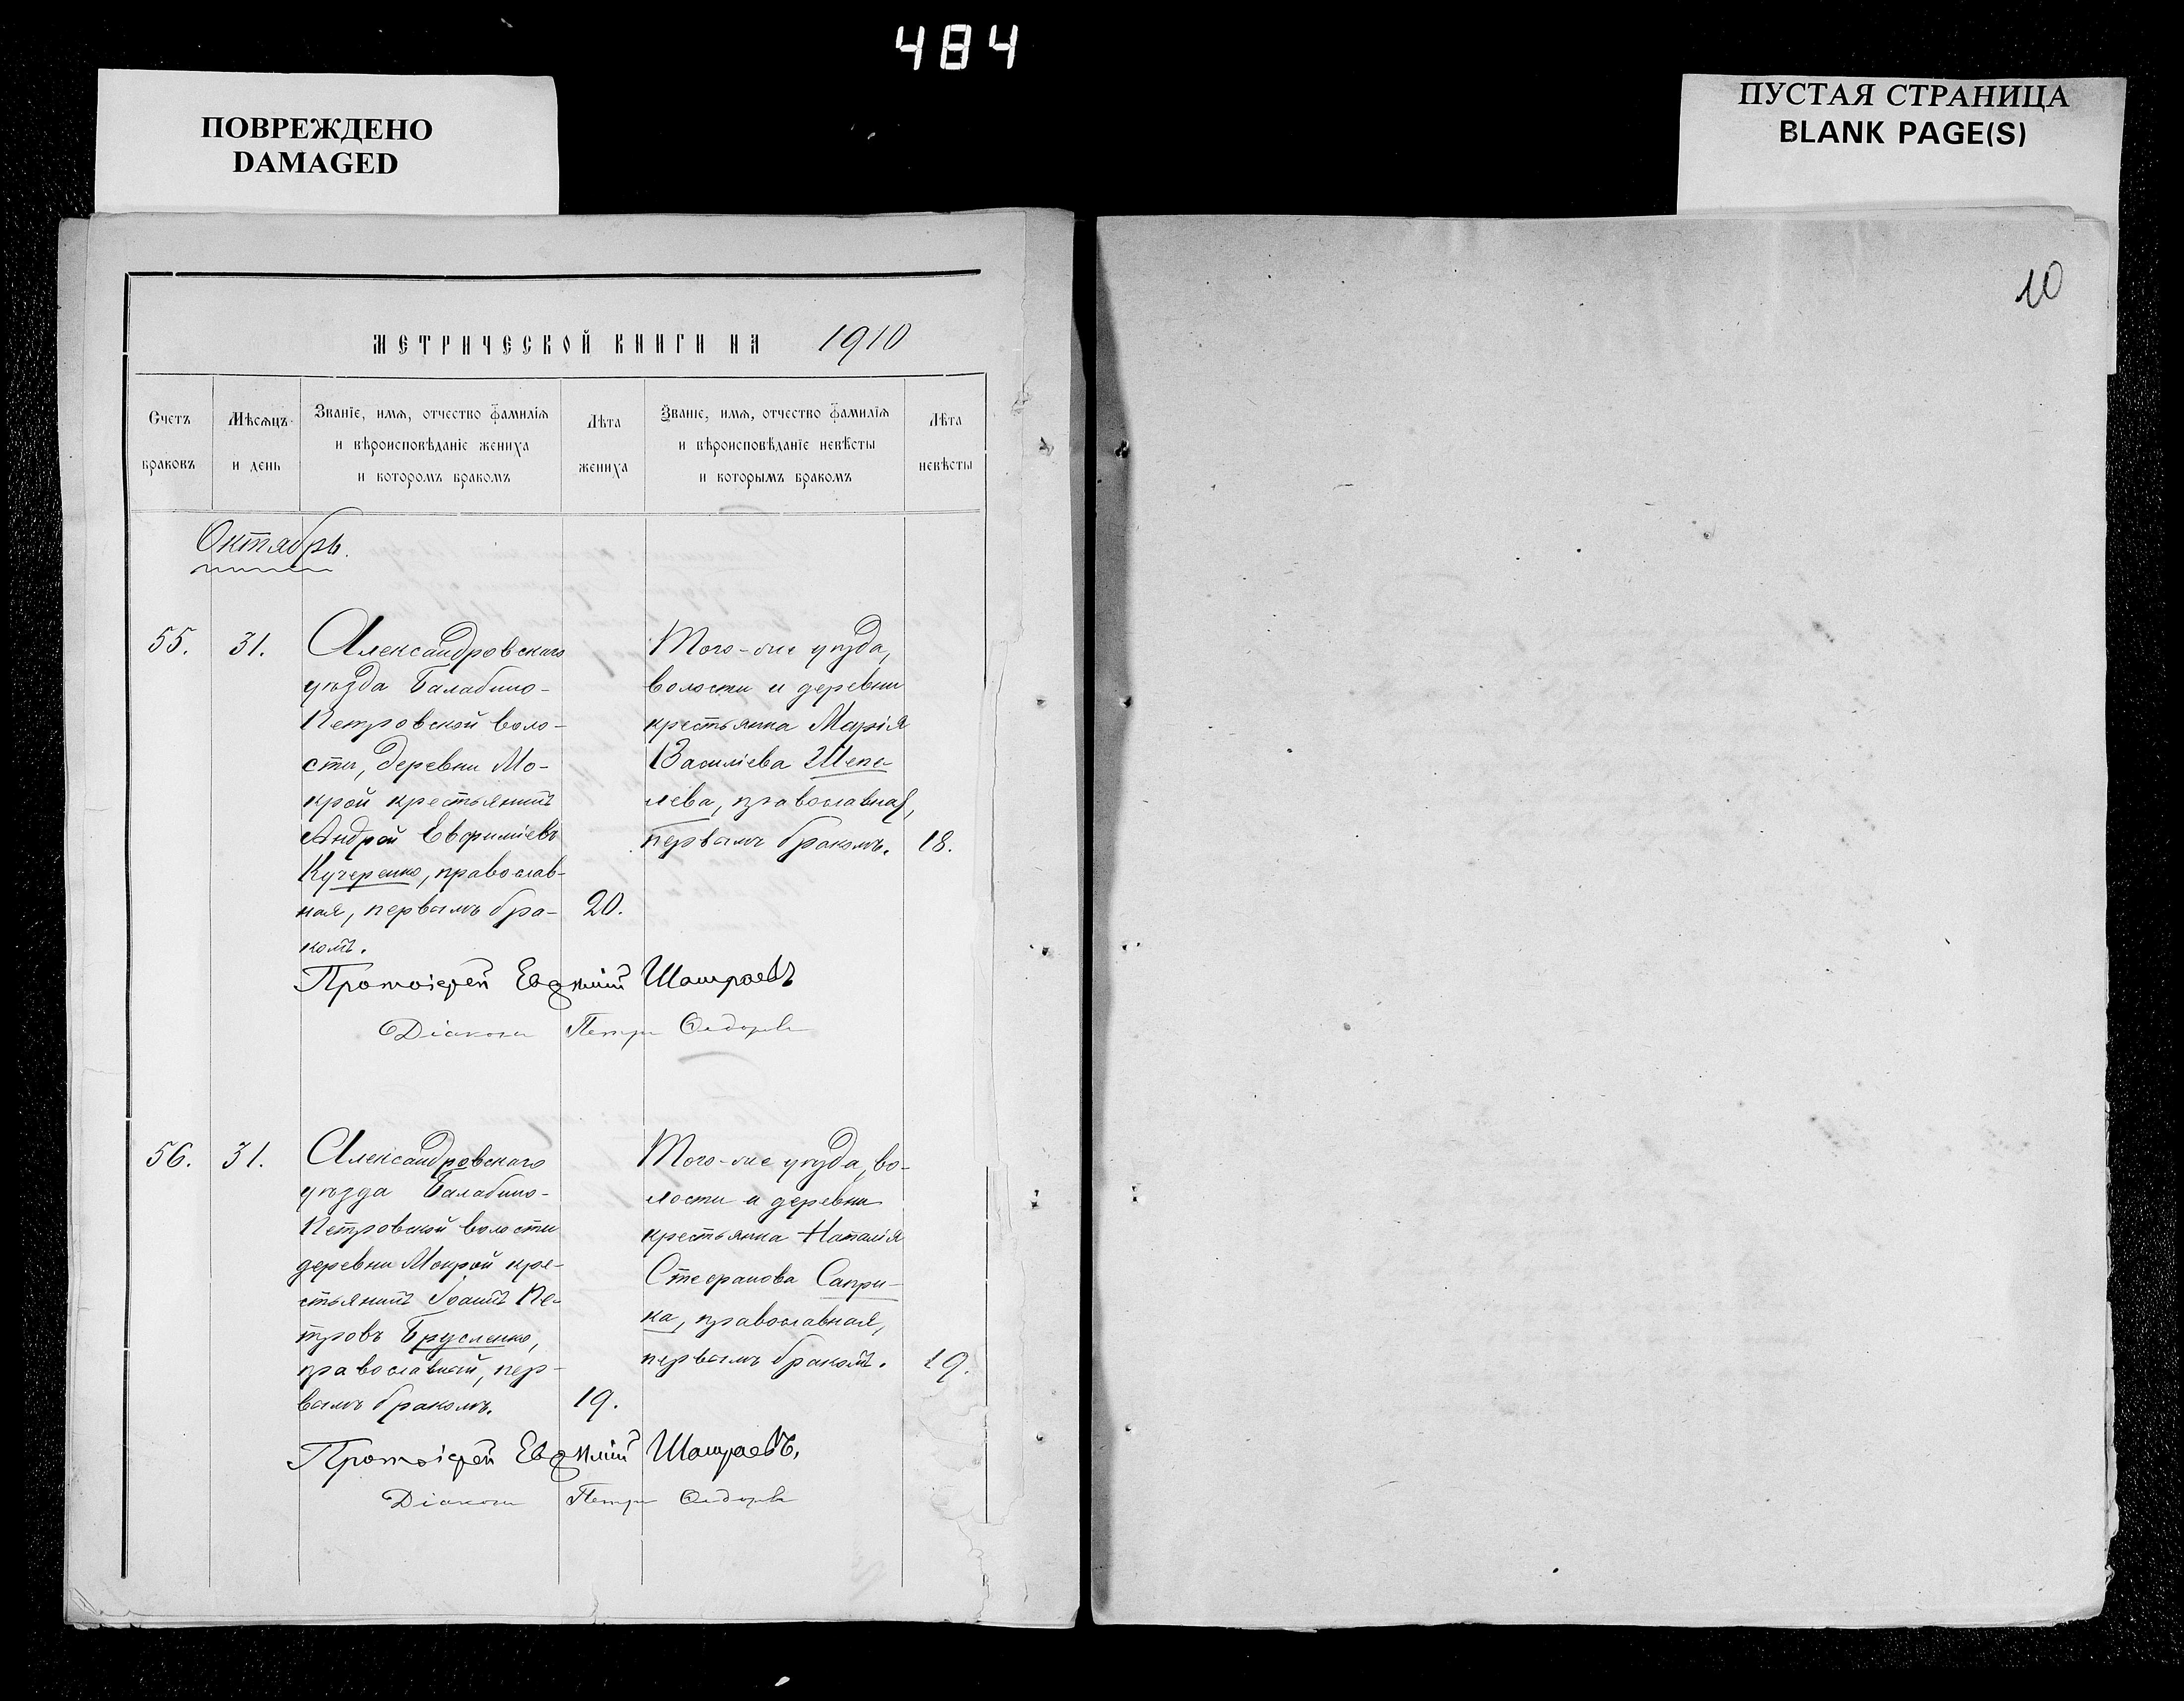 484
ПОВРЕЖДЕНО
DAMAGED
ПУСТАЯ СТРАНИЦА
BLANK PAGE(S)
10
МЕТРИЧЕСКОЙ КНИГИ НА 1910
Счетъ
браковъ
Мѣсяцъ
и день
Званіе, имя, отчество фамилія
и вѣроисповѣданіе жениха
и которомъ бракомъ
Лѣта
жениха
Званіе, имя, отчество фамилія
и вѣроисповѣданіе невѣсты
и которымъ бракомъ
Лѣта
невѣсты
Октябрь.
55.
31.
Александровскаго
уѣзда Балабино-
Петровской воло-
сти, деревни Мо-
крой крестьянинъ
Андрей Евфиміевъ
Кучеренко, православ-
ная, первымъ бра-
комъ.
20.
Того-же уѣзда,
волости и деревни
крестьянка Марія
Василіева Шепе-
лева, православная,
первымъ бракомъ.
18.
Протоіерей Евѳимій
Діаконъ Петръ
56.
31.
Александровскаго
уѣзда Балабино-
Петровской волости
деревни Мокрой кре-
стьянинъ Іоаннъ Пе-
тровъ Брусленко,
православный, пер-
вымъ бракомъ.
19.
Того-же уѣзда, во-
лости и деревни
крестьянка Наталія
Стефанова Сапри-
ка, православная,
первымъ бракомъ.
19.
Протоіерей Евѳимій
Діаконъ Петръ